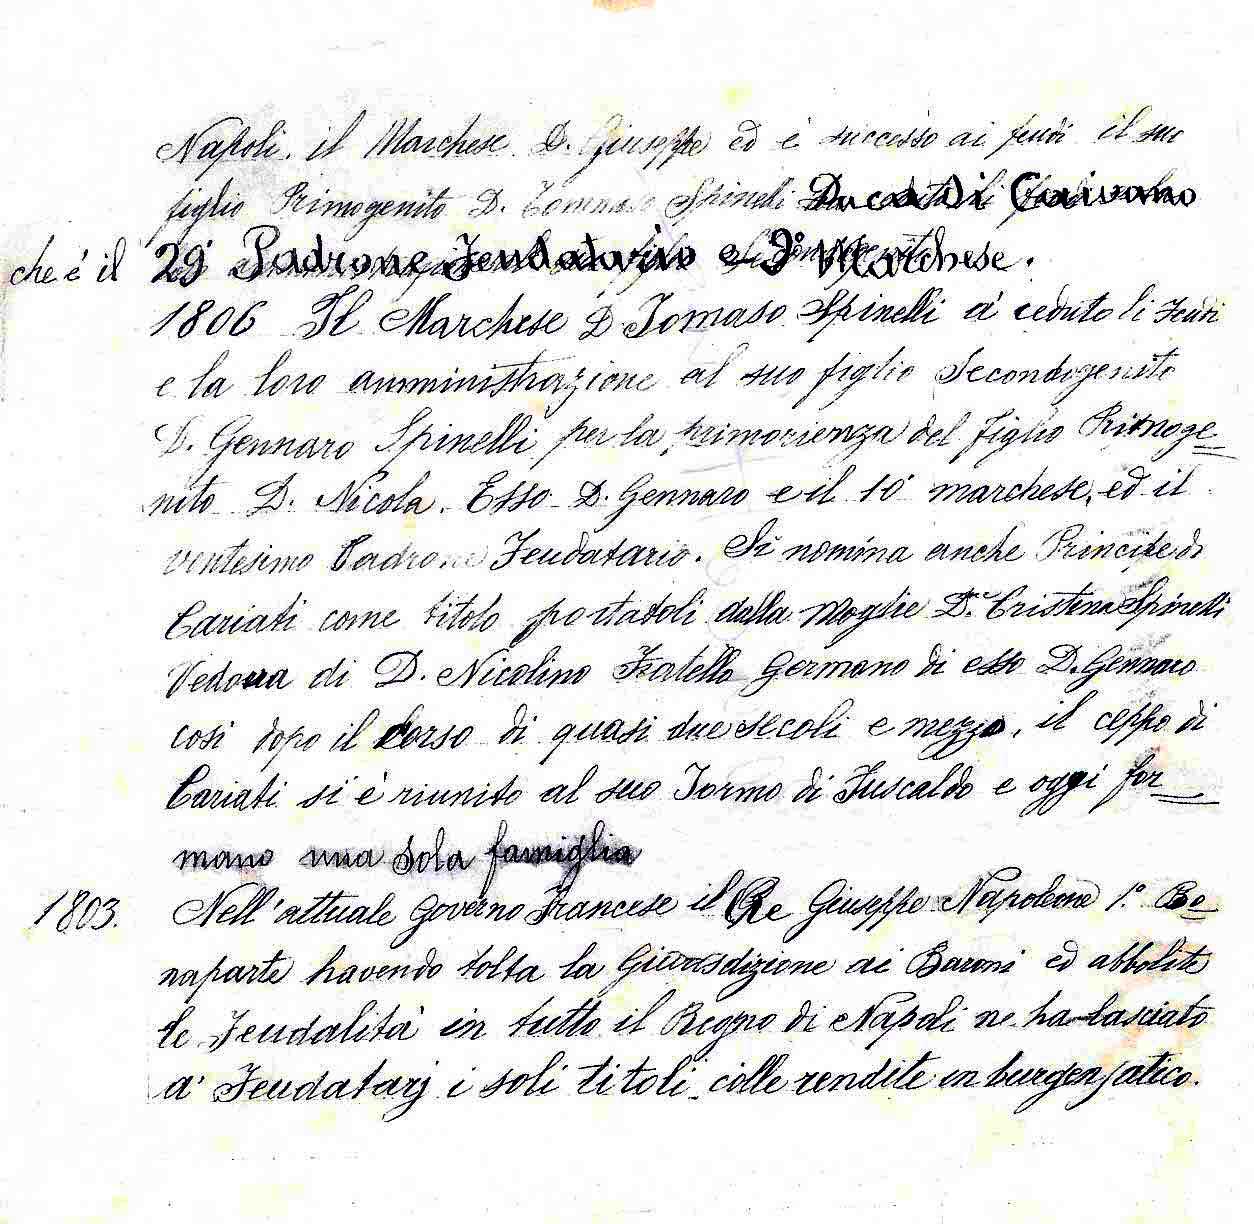 Napoli. il Marchese D. Giuseppe ed é successo ai feudi il suo
figlio Primogenito D. Tommaso Spineli Duca Di Caivano
che é il 29º Padrone Feudatario e 9º Marchese.
1806 Il Marchese D Tomaso Spinelli á ceduto li Feudi
e la loro amministrazione al suo figlio Secondogenito
D. Gennaro Spinelli per la primorienza del figlio Primoge=
nito D. Nicola. Esso D. Gennaro e il 10º marchese, ed il
ventesimo Padrone Feudatario. Si nomina anche Principe di
Cariati come titolo portatoli dalla Moglie D.ª Cristina Spinelli
Vedova di D. Nicolino Fratello Germano di esso D. Gennaro
cosi dopo il Corso di quasi due secoli e mezzo, il ceppo di
Cariati si é riunito al suo Tormo di Fuscaldo e oggi for=
mano una sola famiglia
1803. Nell'attuale Governo Francese il Re Giuseppe Napoleone 1.º Bo=
naparte havendo tolta la Giurisdizione ai Baroni ed abbolite
le Feudalitá in tutto il Regno di Napoli ne ha lasciato
a' Feudatarj i soli titoli colle rendite in burgensatico.